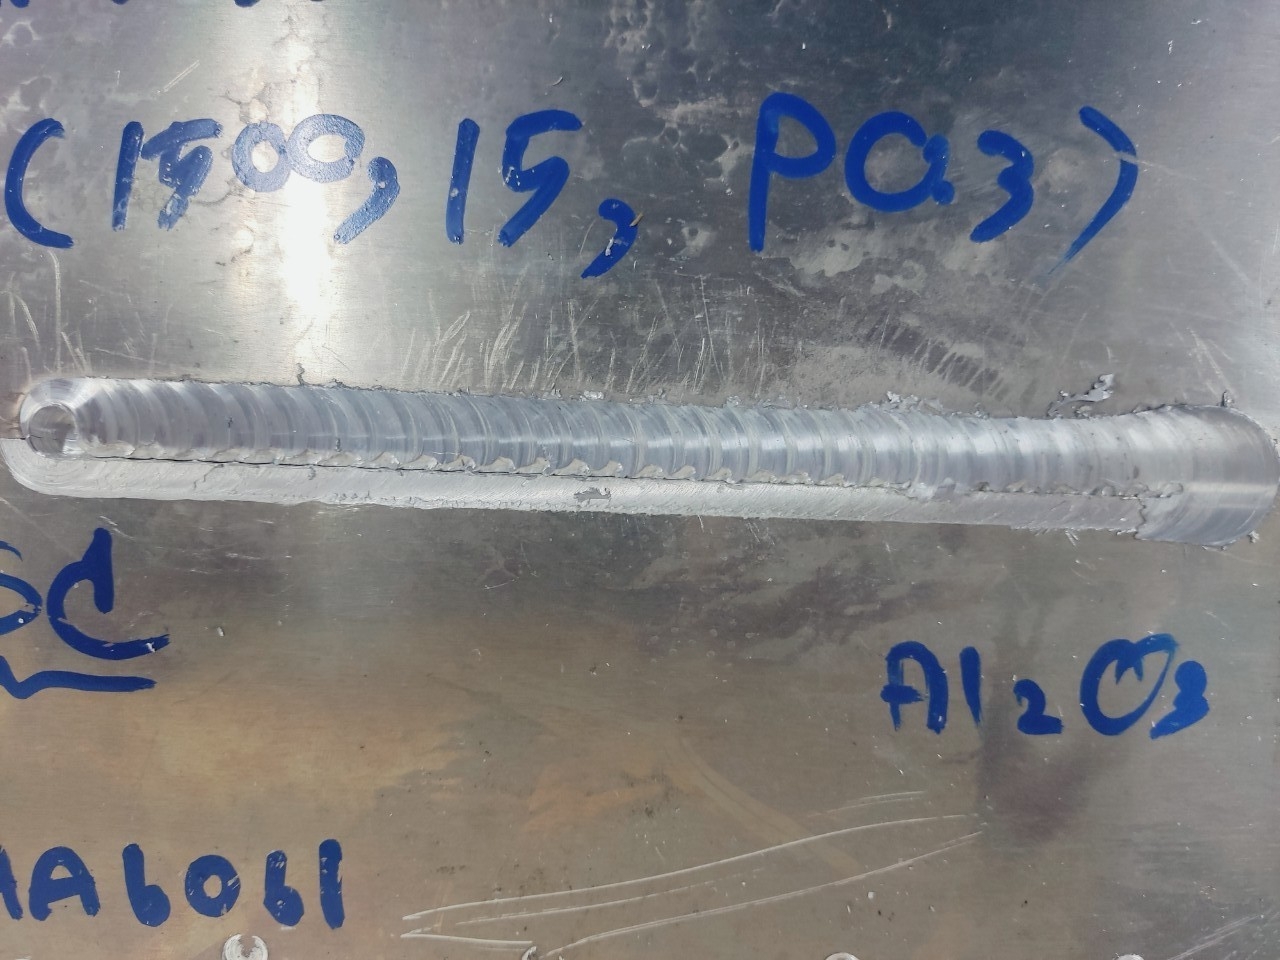 (1500, 15, Pa.3)
Al2O3
AA6061